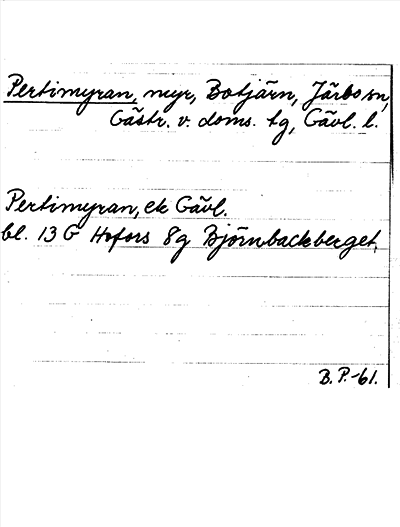 Pertimyran, myr, Botjärn, Järbo sn,
Gästr. v. doms. tg, Gävl. l.
Pertimyran, ek Gävl.
bl. 13 G Hofors 8g Björnbackberget.
B. P. -61.